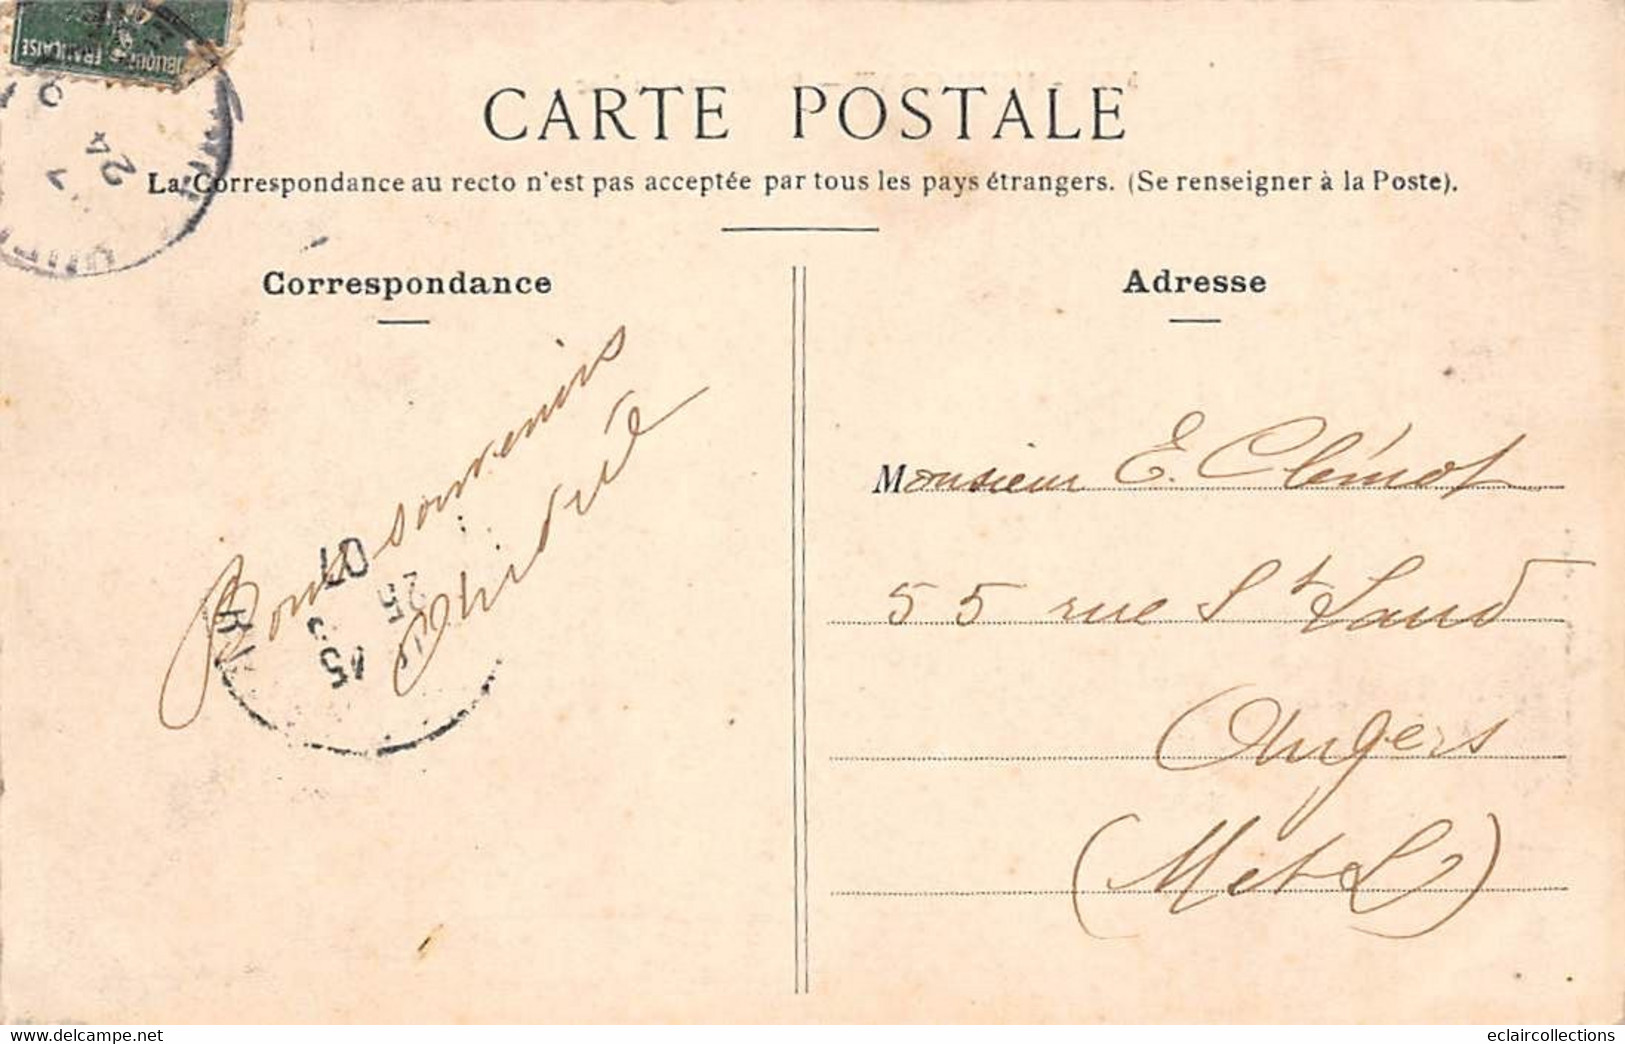 RÉPUBLIQUE FRANÇAISE
24
7
CARTE POSTALE
La Correspondance au recto n'est pas acceptée par tous les pays étrangers. (Se renseigner à la Poste).
Correspondance
Bons souvenirs
15
25
07
Adresse
Monsieur E. Clémot
55 rue St Laud
Angers
(M et L)
www.delcampe.net
eclaircollections